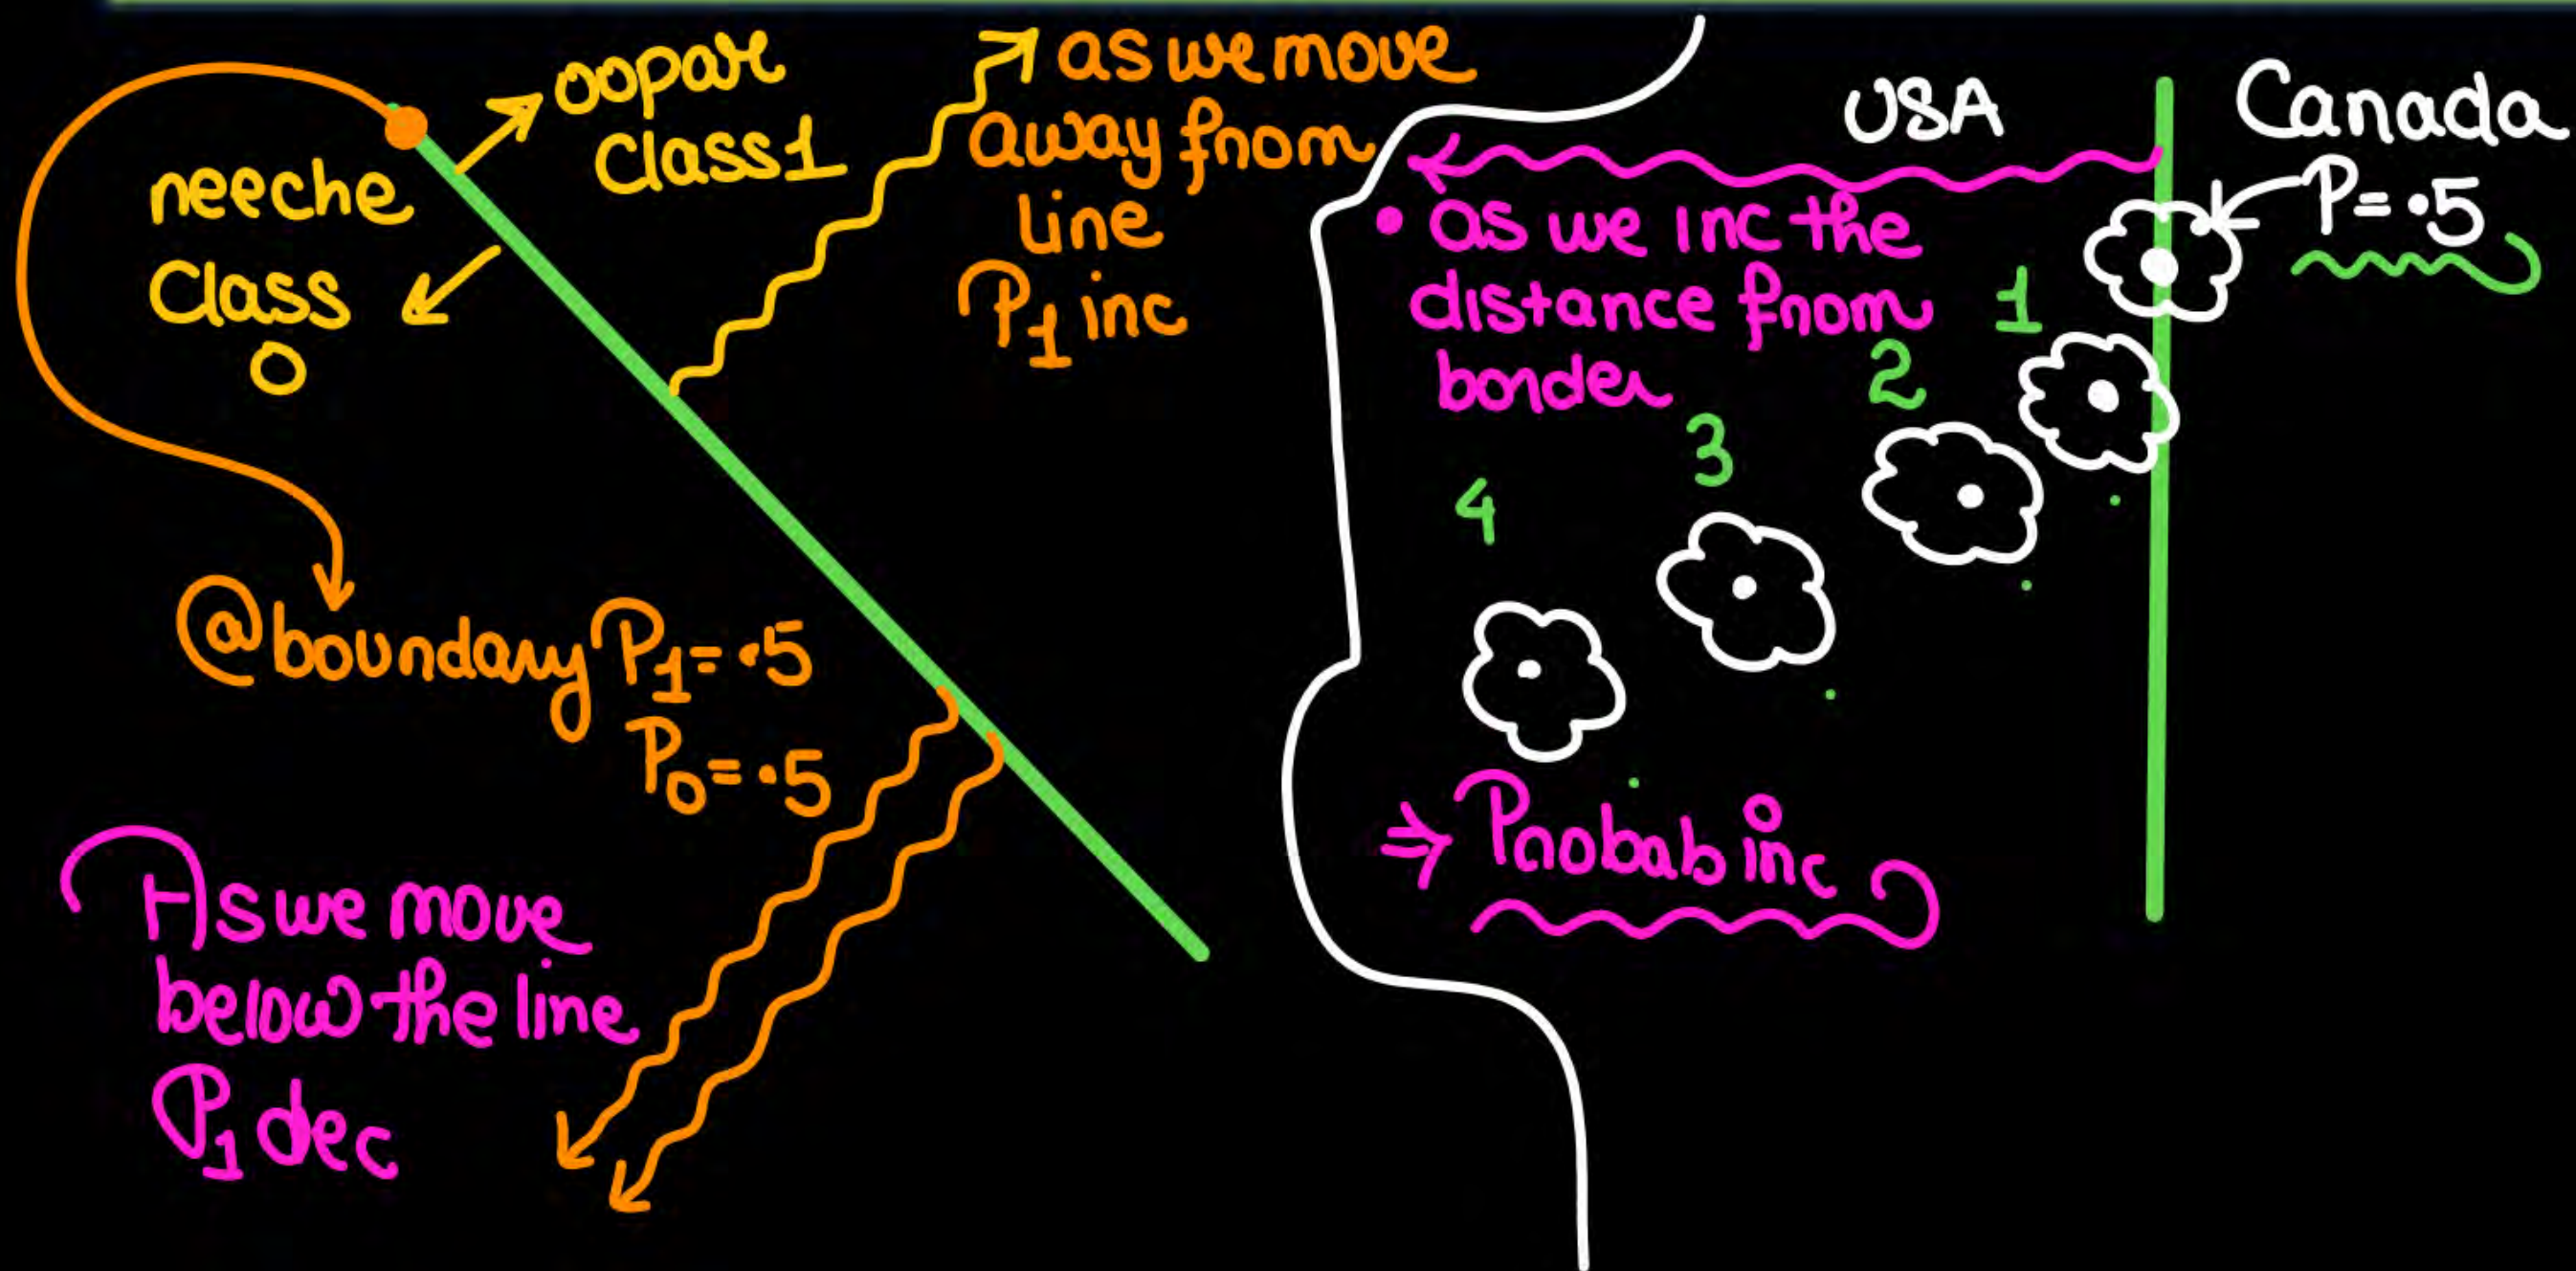 oopar
class1
neeche
class
0
as we move
away from
line
P1 inc
@boundary P1= .5
P0= .5
As we move
below the line
P1 dec
USA
Canada
P= .5
• as we inc the
distance from
border
1
2
3
4
⇒ Probab inc